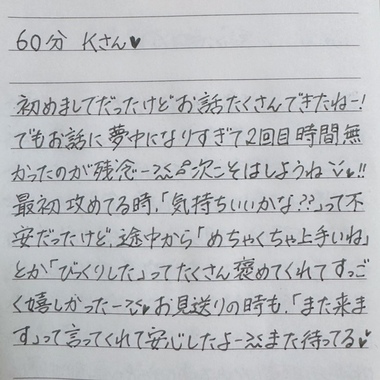 60分 Kさん♥
初めましてだったけどお話たくさんできたねー!
でもお話に夢中になりすぎて2回目時間無
かったのが残念ー次こそはしようね♥!!
最初攻めてる時、「気持ちいいかな??」って不
安だったけど、途中から「めちゃくちゃ上手いね」
とか「びっくりした」ってたくさん褒めてくれてすっご
く嬉しかったー♥お見送りの時も、「また来ま
す」って言ってくれて安心したよーまた待ってる♥